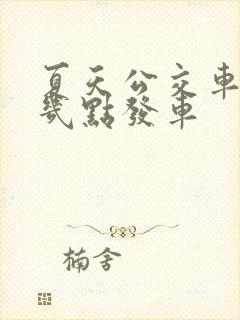 夏天公交車
幾點發車
楠舍